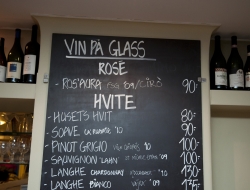 VIN PÅ GLASS
ROSE
- ROS'AURA 09 90-
HVITE
- HUSETS HVIT 80-
- SOAVE '10 90-
- PINOT GRIGIO '09 100-
- SAUVIGNON "LAHN" '09 100-
- LANGHE CHARDONNAY '10 130-
- LANGHE BIANCO '09 135-